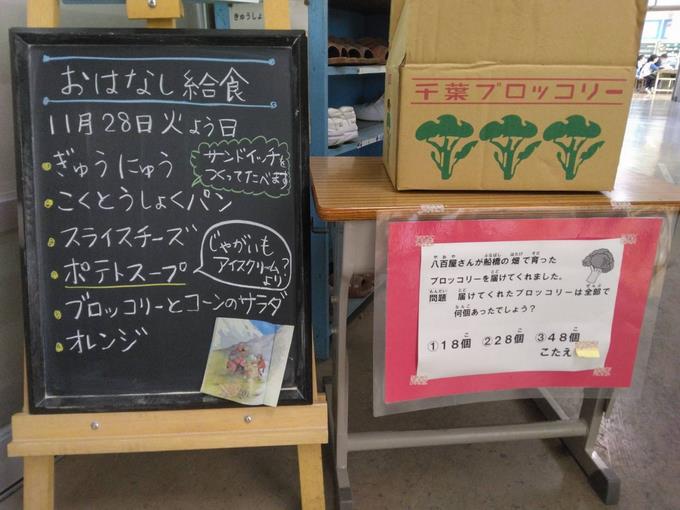 きゅうしょ
おはなし給食
11月28日火よう日
ぎゅうにゅう
サンドイッチを
つくってたべます
こくとうしょくパン
スライスチーズ
じゃがいも
アイスクリーム?
より
ポテトスープ
ブロッコリーとコーンのサラダ
オレンジ
千葉ブロッコリー
八百屋さんが船橋の畑で育った
ブロッコリーを届けてくれました。
問題 届けてくれたブロッコリーは全部で
何個あったでしょう?
①18個 ②28個 ③48個
こたえ